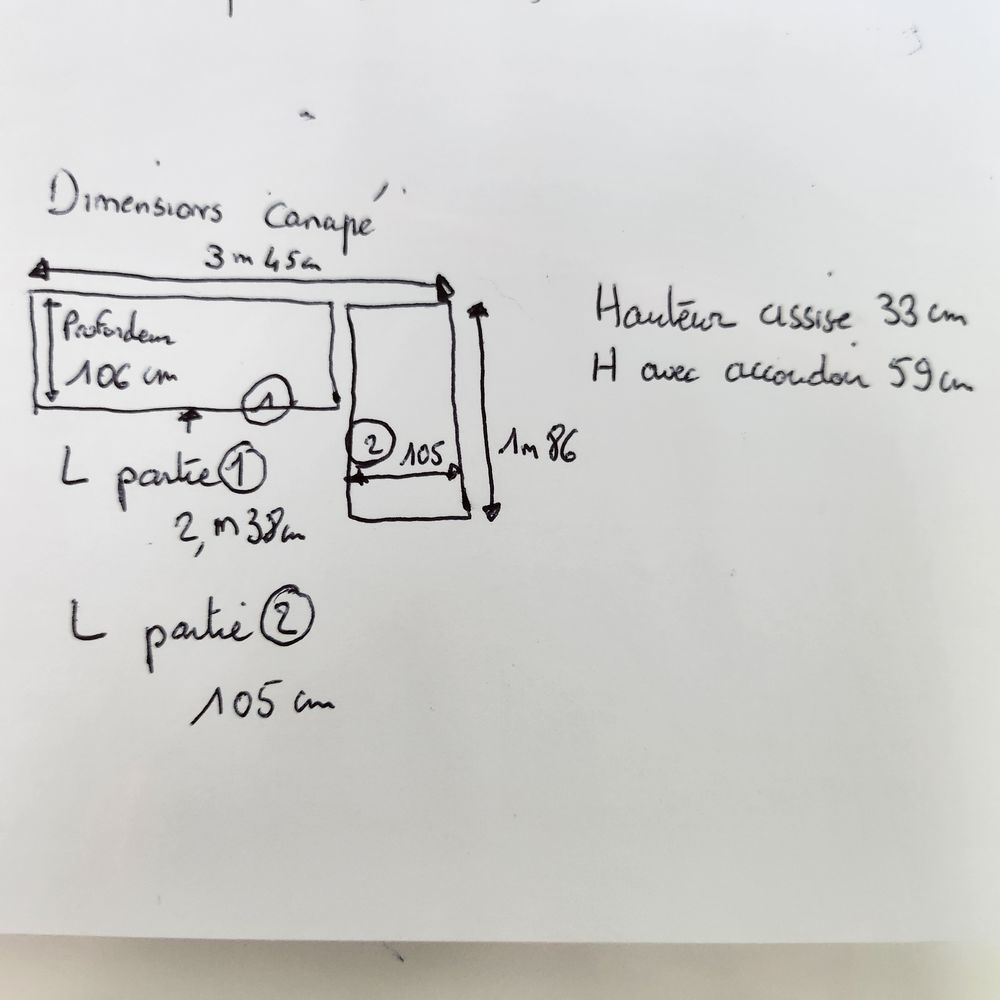 Dimensions canapé
3m 45cm
Profondeur
106 cm
1
L partie 1
2,m38cm
2
105
1m 86
L partie 2
105 cm
Hauteur assise 33 cm
H avec accoudoir 59 cm